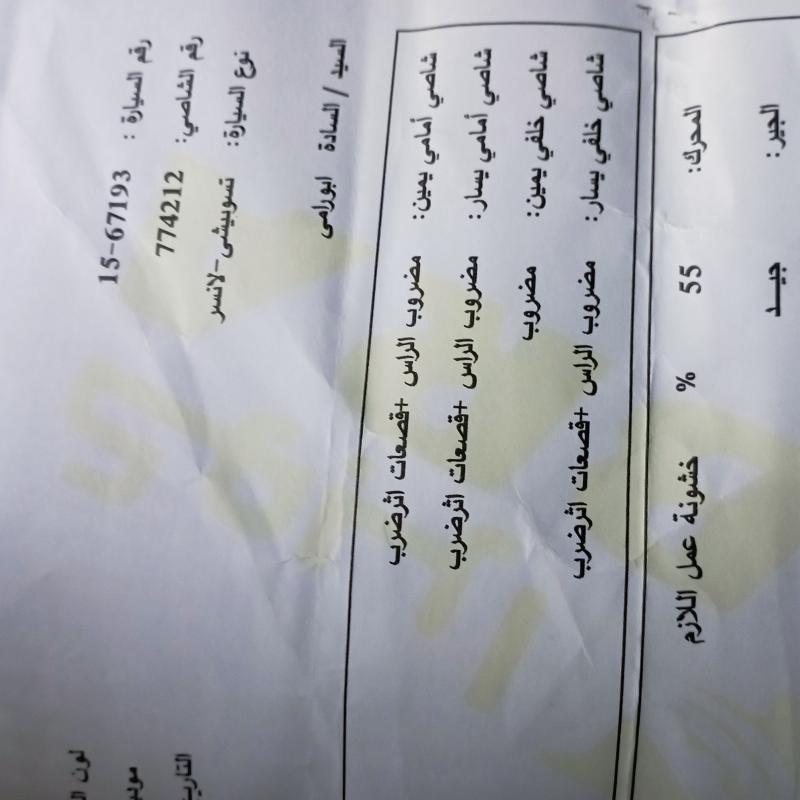 رقم السيارة : 15-67193
رقم الشاصي: 774212
نوع السيارة: تسوبيشى-لانسر
السيد / السادة ابورامى
لون
التاريخ
شاصي أمامي يمين: مضروب الراس +قصعات اثرضرب
شاصي أمامي يسار: مضروب الراس +قصعات اثرضرب
شاصي خلفي يمين: مضروب
شاصي خلفي يسار: مضروب الراس +قصعات اثرضرب
المحرك: 55 % خشونة عمل اللازم
الجير: جيــد